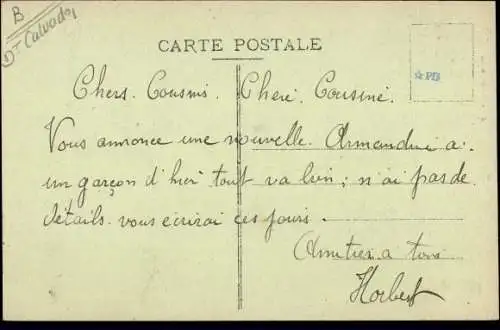 B
Dt Calvados
CARTE POSTALE
PB
Chers. Cousins. Cheré. Cousine.
Vous annonce une nouvelle. Armandine a
un garçon d'hier tout va bien; n'ai pas de
détails. vous écrirai ces jours.
Amities a tous